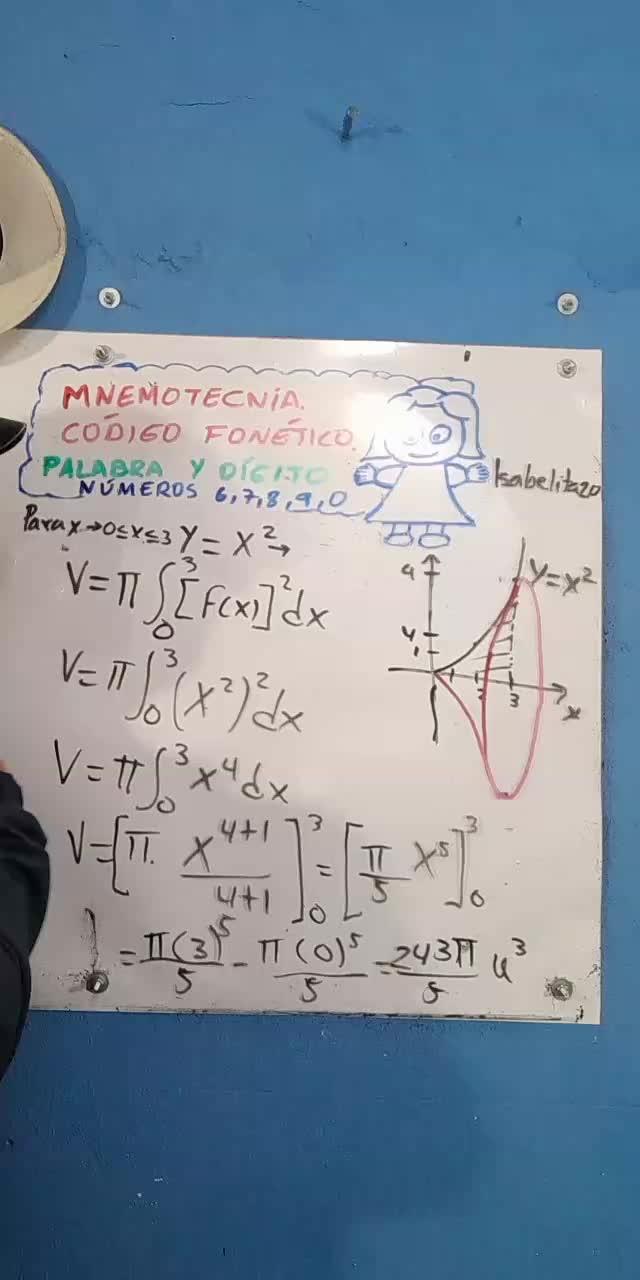 MNEMOTECNIA.
CÓDIGO FONÉTICO.
PALABRA Y DÍGITO
NÚMEROS 6,7,8,9,0
Isabelita20
Para x→0≤x≤3 Y = X²→
V = π ∫₀³ [f(x)]² dx
V = π ∫₀³ (X²)² dx
V = π ∫₀³ x⁴ dx
V = [π. X⁴⁺¹/4+1]₀³ = [π/5 X⁵]₀³
= π(3)⁵/5 - π(0)⁵/5 = 243π/5 u³
Y=x²
9
4
1
2
3
x